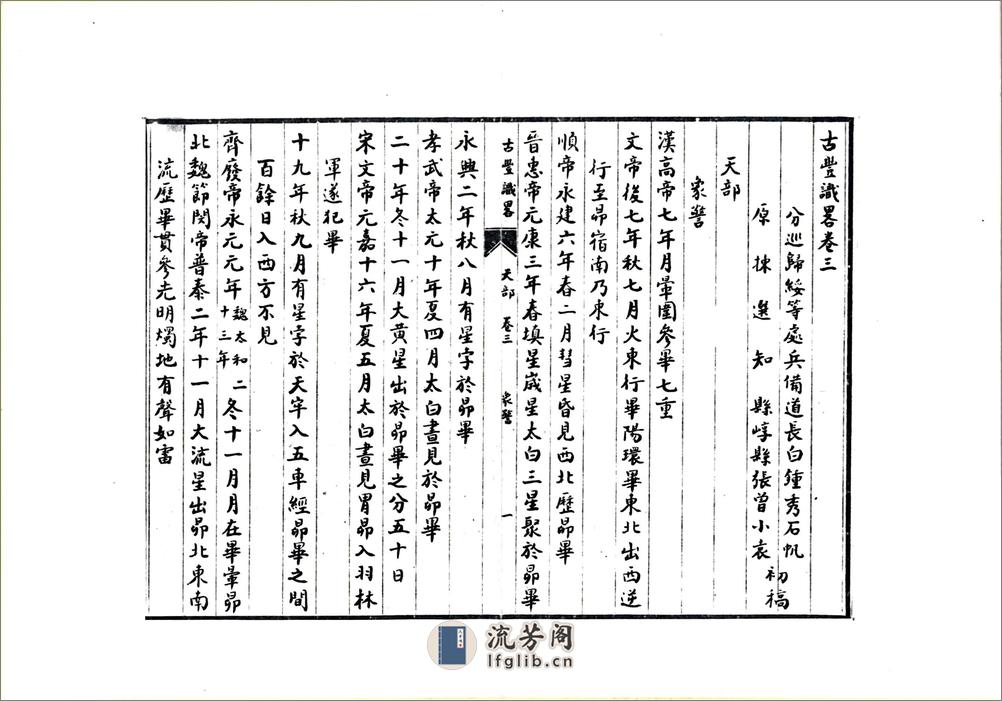 古豐識畧卷三
分巡歸綏等處兵備道長白鍾秀石帆
原揀選知縣崞縣張曾小袁
初稿
天部
象警
漢高帝七年月暈圍參畢七重
文帝後七年秋七月火東行畢陽環畢東北出西逆
行至昴宿南乃東行
順帝永建六年春二月彗星昏見西北歷昴畢
晉惠帝元康三年春填星歲星太白三星聚於昴畢
古豐識畧 天部 卷三 象警 一
永興二年秋八月有星孛於昴畢
孝武帝太元十年夏四月太白晝見於昴畢
二十年冬十一月大黄星出於昴畢之分五十日
宋文帝元嘉十六年夏五月太白晝見胃昴入羽林
軍遂犯畢
十九年秋九月有星孛於天牢入五車經昴畢之間
百餘日入西方不見
齊廢帝永元元年魏太和二十三年冬十一月月在畢暈昴
北魏節閔帝普泰二年十一月大流星出昴北東南
流歷畢貫參光明燭地有聲如雷
流芳阁
lfglib.cn